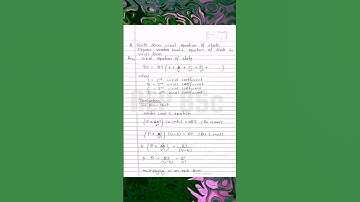 Q. Write down virial equation of state.
Express vander waal's equation of state in
virial form.
Ans. Virial equation of state
PV = RT ( 1 + B/V + C/V² + D/V³ + ...... )
where
A = 1st virial coefficient
B = 2nd virial coefficient
C = 3rd virial coefficient
D = 4th virial coefficient
Derivation
vander waal's equation
(P + an²/V²) (V - nb) = nRT (for n mole)
(P + a/V²) (V-b) = RT (for 1 mole)
(P + a/V²) = RT/(V-b)
P = RT/(V-b) - a/V²
multiplying V on each term
BSc